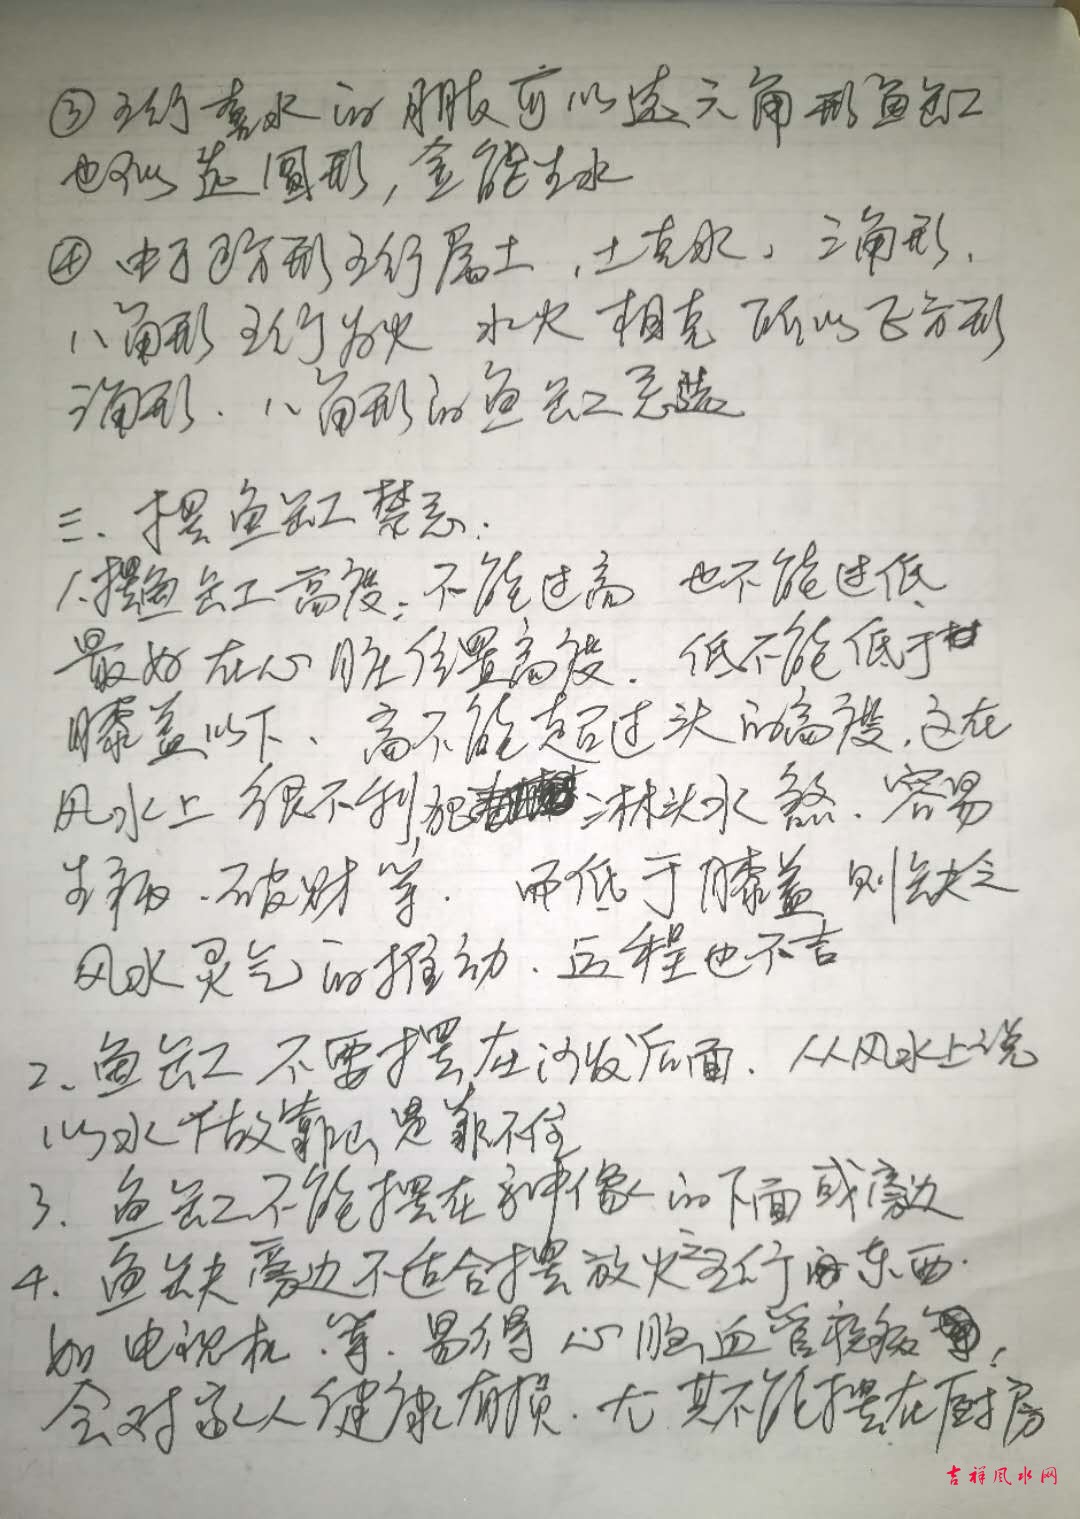 ③五行喜水的朋友可以选六角形鱼缸
也可以选圆形，金能生水
④由于正方形五行属土，土克水，三角形、
八角形五行为火 水火相克 所以正方形
三角形、八角形的鱼缸忌选
三、摆鱼缸禁忌：
1、摆鱼缸高度：不能过高 也不能过低
最好在心脏位置高度．低不能低于
膝盖以下、高不能超过头的高度，这在
风水上很不利，犯淋头水煞．容易
生病、破财等． 而低于膝盖则缺乏
风水灵气的推动．运程也不吉
2、鱼缸不要摆在沙发后面．从风水上说
以水做靠山是靠不住
3．鱼缸不能摆在神像的下面或旁边
4．鱼缸旁边不适合摆放火之五行的东西．
如电视机．等．易得心脑血管疾病等，
会对家人健康有损．尤其不能摆在厨房
吉祥风水网